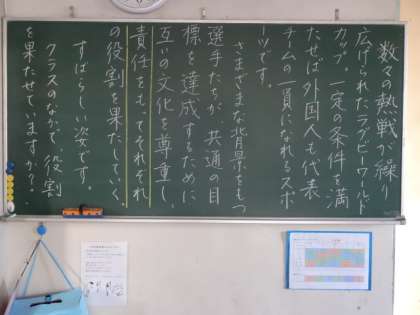 数々の熱戦が繰り
広げられたラグビーワールド
カップ。一定の条件を満
たせば外国人も代表
チームの一員になれるスポ
ーツです。
さまざまな背景をもつ
選手たちが、共通の目
標を達成するために
互いの文化を尊重し、
責任をもってそれぞれ
の役割を果たしていく
すばらしい姿です。
クラスのなかで、役割
を果たせていますか？